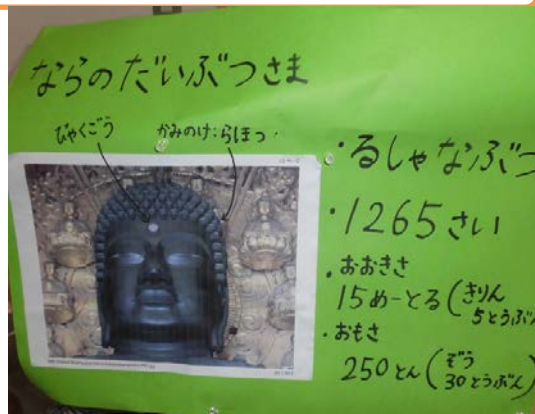 ならのだいぶつさま
びゃくごう
かみのけ:らほつ
・るしゃなぶつ
・1265さい
・おおきさ
15めーとる(きりん
5とうぶん
・おもさ
250とん(ぞう
30とうぶん)